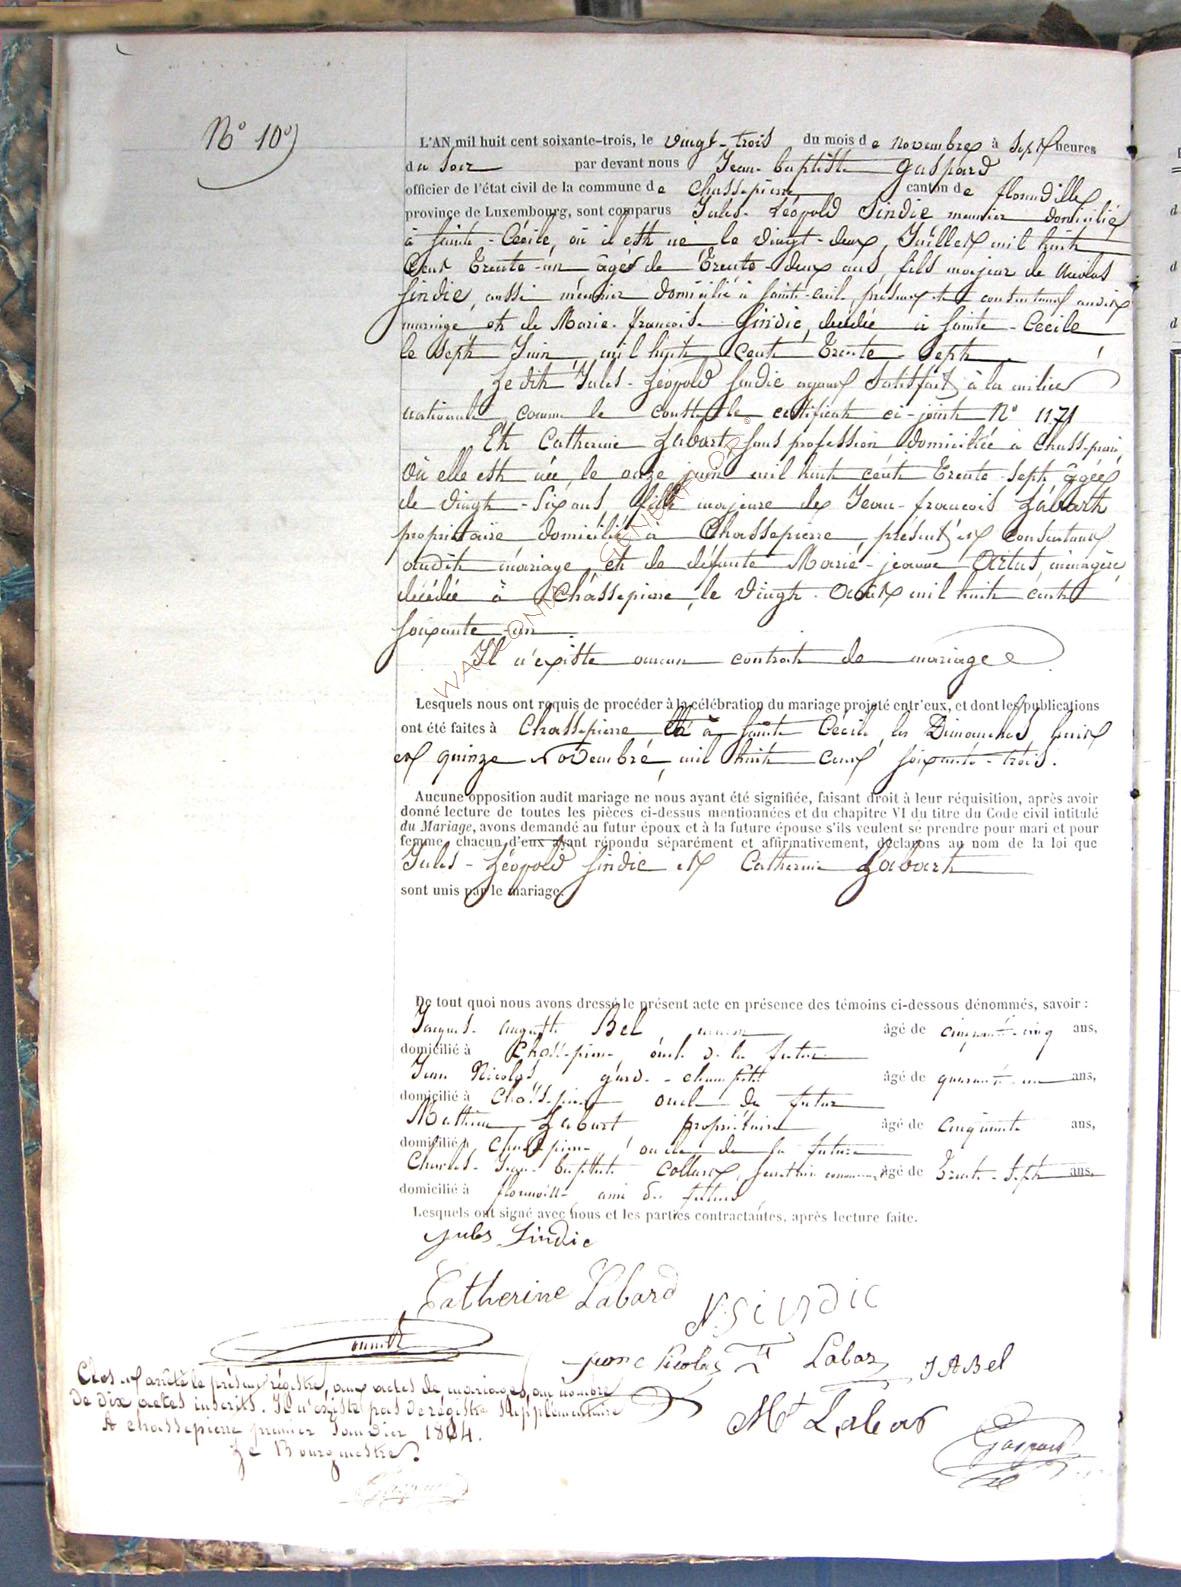 N° 10
L'AN mil huit cent soixante-trois, le vingt-trois du mois de novembre à sept heures
du soir par devant nous Jean-baptiste Gaspard
officier de l'état civil de la commune de Chassepierre canton de florenville
province de Luxembourg, sont comparus Jules-Léopold Sindic meunier domicilié
à Sainte-Cécile, où il est né, le vingt-deux Juillet mil huit
Cent Trente-un âgé de Trente-deux ans, fils majeur de Nicolas
Sindic, aussi meunier domicilié à Sainte-Cécile, présent et consentant audit
mariage et de Marie-françoise Sindic, décédée à Sainte-Cécile
le Sept Juin mil huit cent Trente-sept
Ledit Jules-Léopold Sindic ayant satisfait à la milice
nationale comme le constate le certificat ci-joint N° 1171
Et Catherine Labart, sans profession domiciliée à Chassepierre,
où elle est née, le onze juin mil huit cent Trente-sept âgée
de vingt-six ans fille majeure de Jean-françois Labart
propriétaire domicilié à Chassepierre, présent et consentant
audit mariage, et de défunte Marie-jeanne Artus, ménagère
décédée à Chassepierre, le vingt-Août mil huit cent
soixante-un
Il n'existe aucun contrat de mariage
Lesquels nous ont requis de procéder à la célébration du mariage projeté entr'eux, et dont les publications
ont été faites à Chassepierre et à Sainte Cécile les Dimanches huit
et quinze Novembre, mil huit cent soixante-trois.
Aucune opposition audit mariage ne nous ayant été signifiée, faisant droit à leur réquisition, après avoir
donné lecture de toutes les pièces ci-dessus mentionnées et du chapitre VI du titre du Code civil intitulé
du Mariage, avons demandé au futur époux et à la future épouse s'ils veulent se prendre pour mari et pour
femme, chacun d'eux ayant répondu séparément et affirmativement, déclarons au nom de la loi que
Jules-Léopold Sindic et Catherine Labart
sont unis par le mariage.
De tout quoi nous avons dressé le présent acte en présence des témoins ci-dessous dénommés, savoir :
Jacques-auguste Bel âgé de cinquante-cinq ans,
domicilié à Chassepierre oncle de la future
Jean Nicolas garde-champêtre âgé de quarante-un ans,
domicilié à Chassepierre oncle du futur
Mathieu Labart propriétaire âgé de cinquante ans,
domicilié à Chassepierre oncle de la future
Charles-Jean-baptiste Collard, âgé de Trente-sept ans,
domicilié à florenville ami du futur
Lesquels ont signé avec nous et les parties contractantes, après lecture faite.
Jules Sindic
Catherine Labard
N. Sindic
Jean Nicolas Labar J A Bel
Mt Labar
Gaspard
Clos et arrêté le présent régistre, aux actes de mariages, au nombre
de dix actes inscrits. Il n'existe pas de régistre supplémentaire
A Chassepierre premier Janvier 1864.
Le Bourgmestre.
Gaspard